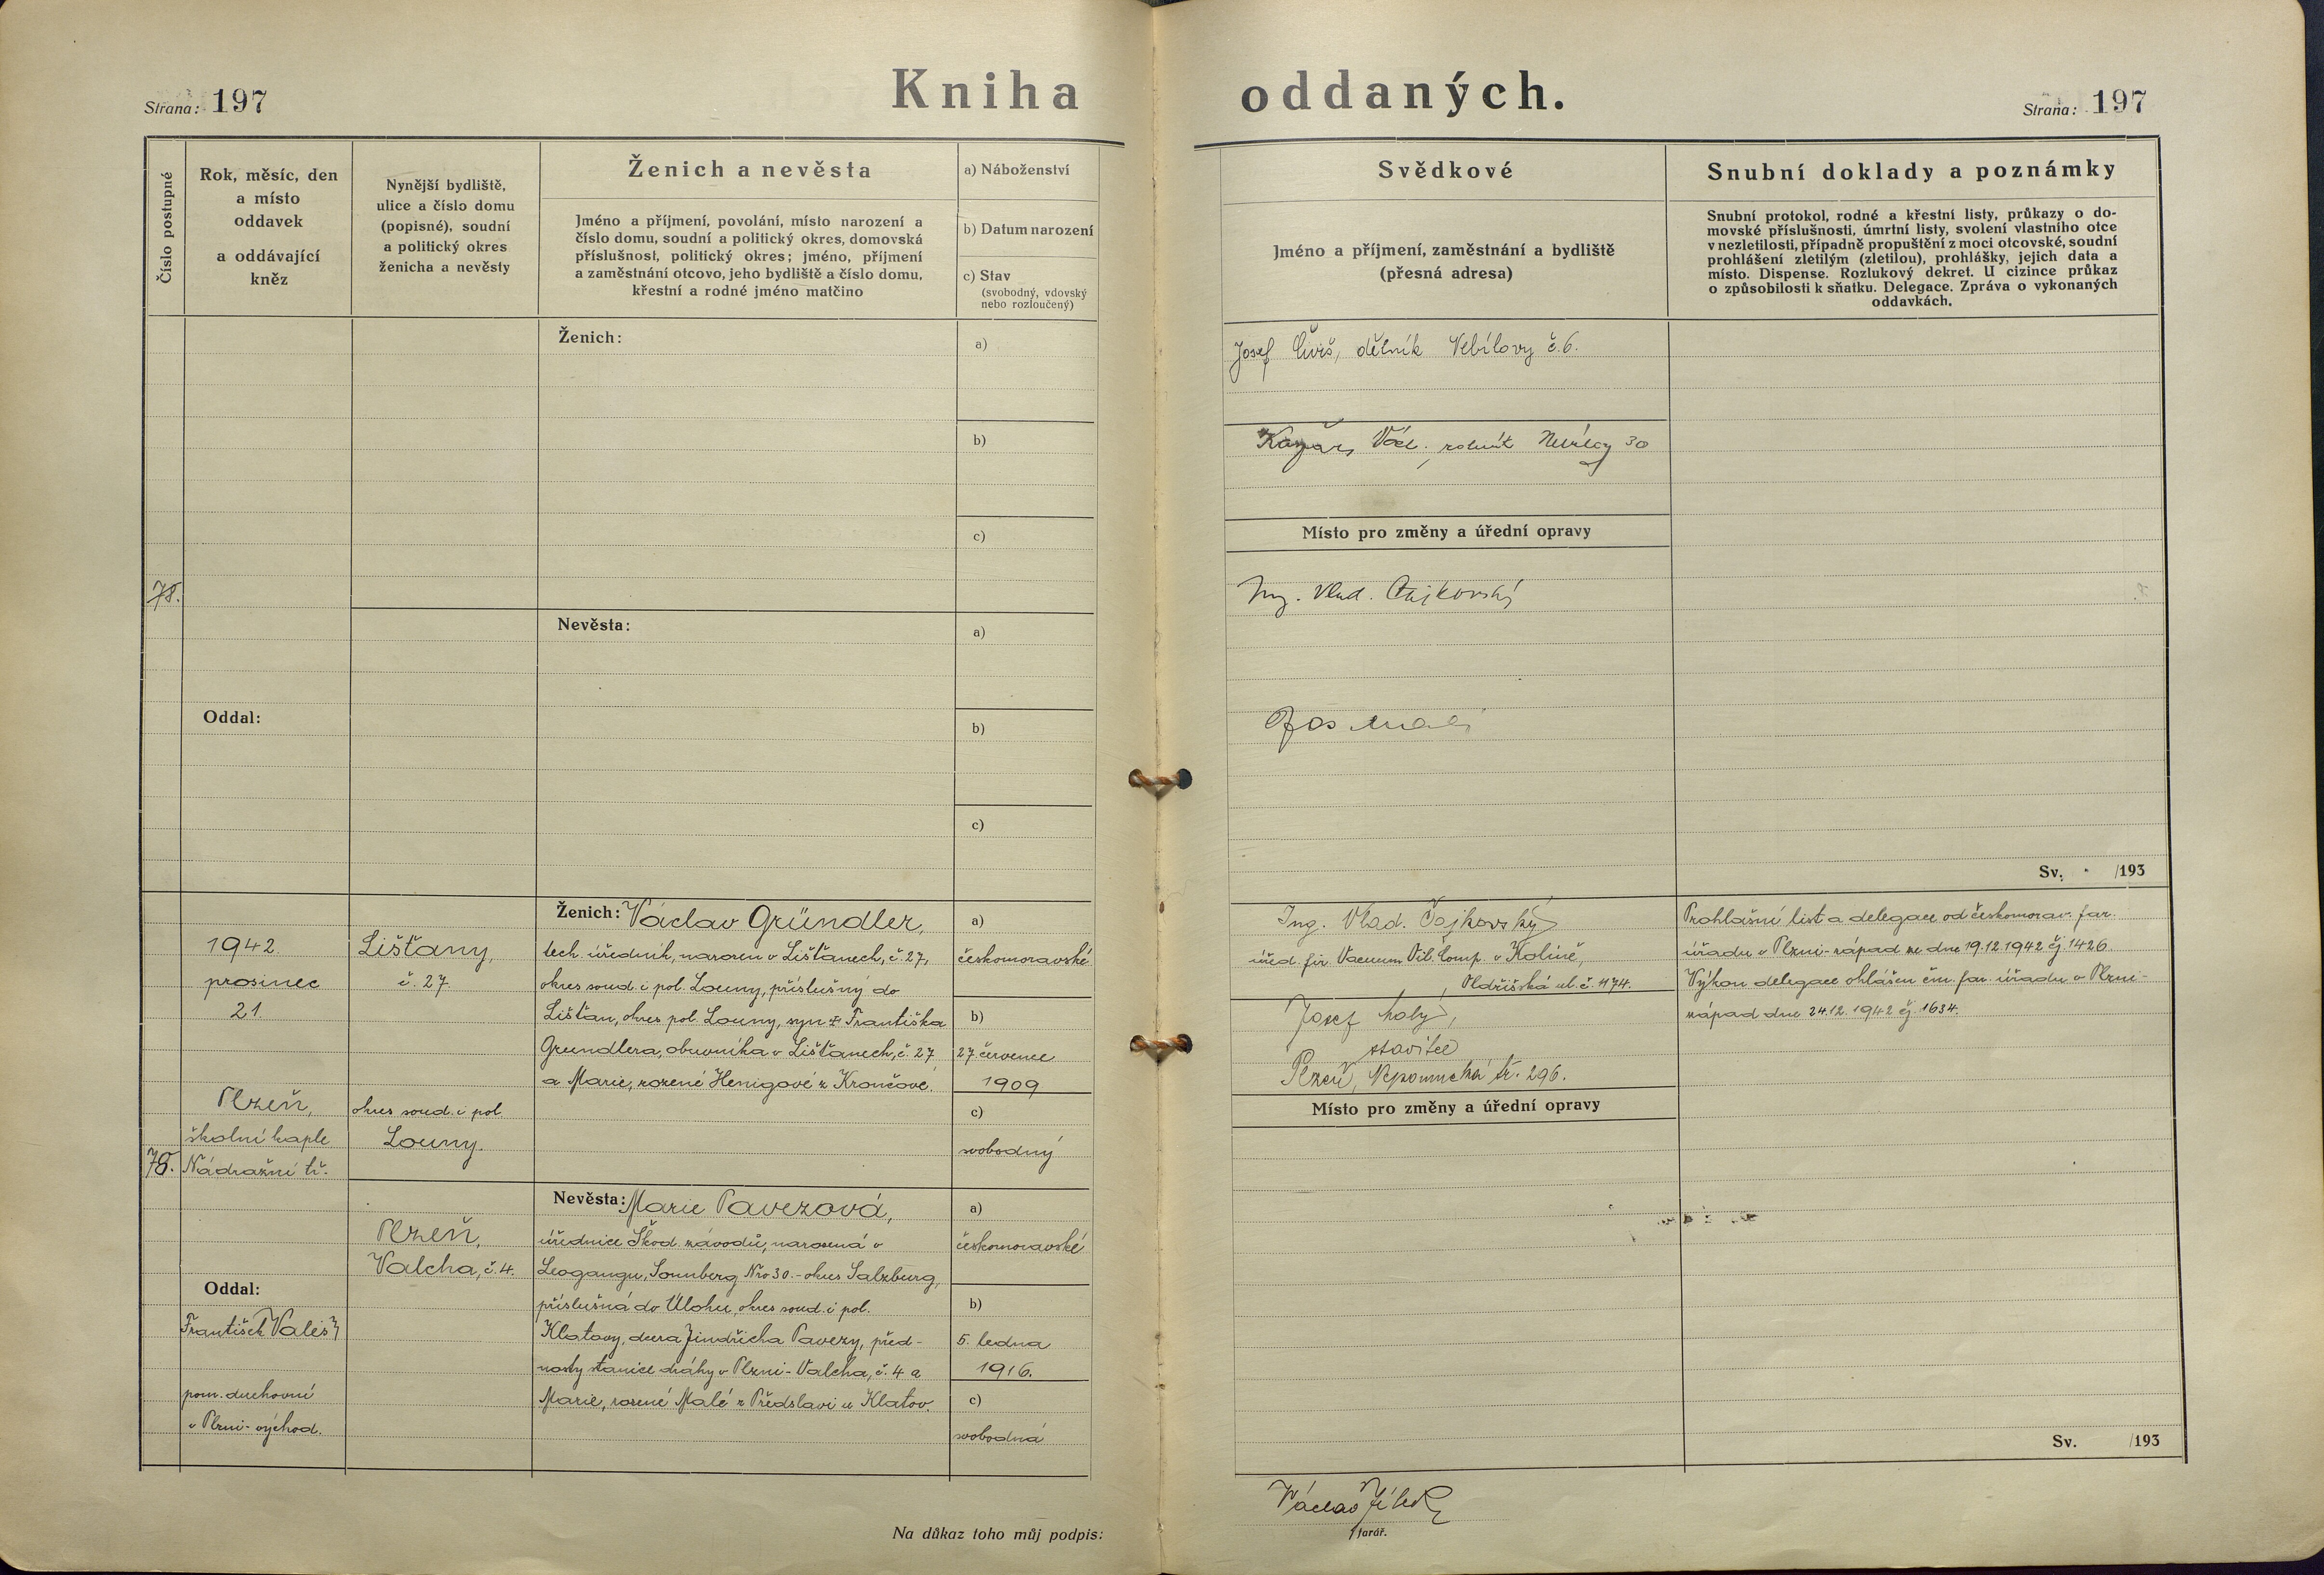 Strana: 197
Kniha oddaných.
Strana: 197
Číslo postupné
Rok, měsíc, den
a místo
oddavek
a oddávající
kněz
Nynější bydliště,
ulice a číslo domu
(popisné), soudní
a politický okres
ženicha a nevěsty
Ženich a nevěsta
Jméno a příjmení, povolání, místo narození a
číslo domu, soudní a politický okres, domovská
příslušnost, politický okres; jméno, příjmení
a zaměstnání otcovo, jeho bydliště a číslo domu,
křestní a rodné jméno matčino
a) Náboženství
b) Datum narození
c) Stav
(svobodný, vdovský
nebo rozloučený)
Svědkové
Jméno a příjmení, zaměstnání a bydliště
(přesná adresa)
Snubní doklady a poznámky
Snubní protokol, rodné a křestní listy, průkazy o do-
movské příslušnosti, úmrtní listy, svolení vlastního otce
v nezletilosti, případně propuštění z moci otcovské, soudní
prohlášení zletilým (zletilou), prohlášky, jejich data a
místo. Dispense. Rozlukový dekret. U cizince průkaz
o způsobilosti k sňatku. Delegace. Zpráva o vykonaných
oddavkách.
78.
Oddal:
Ženich:
a)
b)
c)
Nevěsta:
a)
b)
c)
Josef dělník Vebílovy č. 6.
Václ. rolník 30
Místo pro změny a úřední opravy
Ing. Vlad. Čajkovský
Jos
Sv. /193
78.
1942
prosinec
21
Plzeň,
školní kaple
Nádražní tř.
Oddal:
František Valeš
pom. duchovní
v Plzni-východ.
Lišťany,
č. 27
okres soud. i pol.
Louny.
Plzeň,
Valcha, č. 4.
Ženich: Václav Gründler,
tech. úředník, narozen v Lišťanech, č. 27,
okres soud. i pol. Louny, příslušný do
Lišťan, okres pol. Louny, syn Františka
Gruendlera, obuvníka v Lišťanech, č. 27
a Marie, rozené Henigové z Krončové.
a)
českomoravské
b)
27 července
1909
c)
svobodný
Nevěsta: Marie Pavezová,
úřednice Škod. závodů, narozená v
Leogangu, Sonnberg Nro 30. - okres Salzburg,
příslušná do Úlohu, okres soud. i pol.
Klatovy, dcera Jindřicha Pavezy, před-
nosty stanice dráhy v Plzni-Valcha, č. 4 a
Marie, rozené Malé z Předslavi u Klatov.
a)
českomoravské
b)
5. ledna
1916.
c)
svobodná
Ing. Vlad. Čajkovský
úřed. fir. Vacuum Oil Comp. v Kolíně,
ul. č. 1174.
Josef
stavitel
Plzeň, Nepomucká tř. 296.
Místo pro změny a úřední opravy
Prohlašní list a delegace od českomorav. far.
úřadu v Plzni-západ ze dne 19.12.1942 čj. 1426.
Výkon delegace ohlášen čm. far. úřadu v Plzni-
západ dne 24.12.1942 čj. 1634.
Sv. /193
Na důkaz toho můj podpis:
Václav
farář.